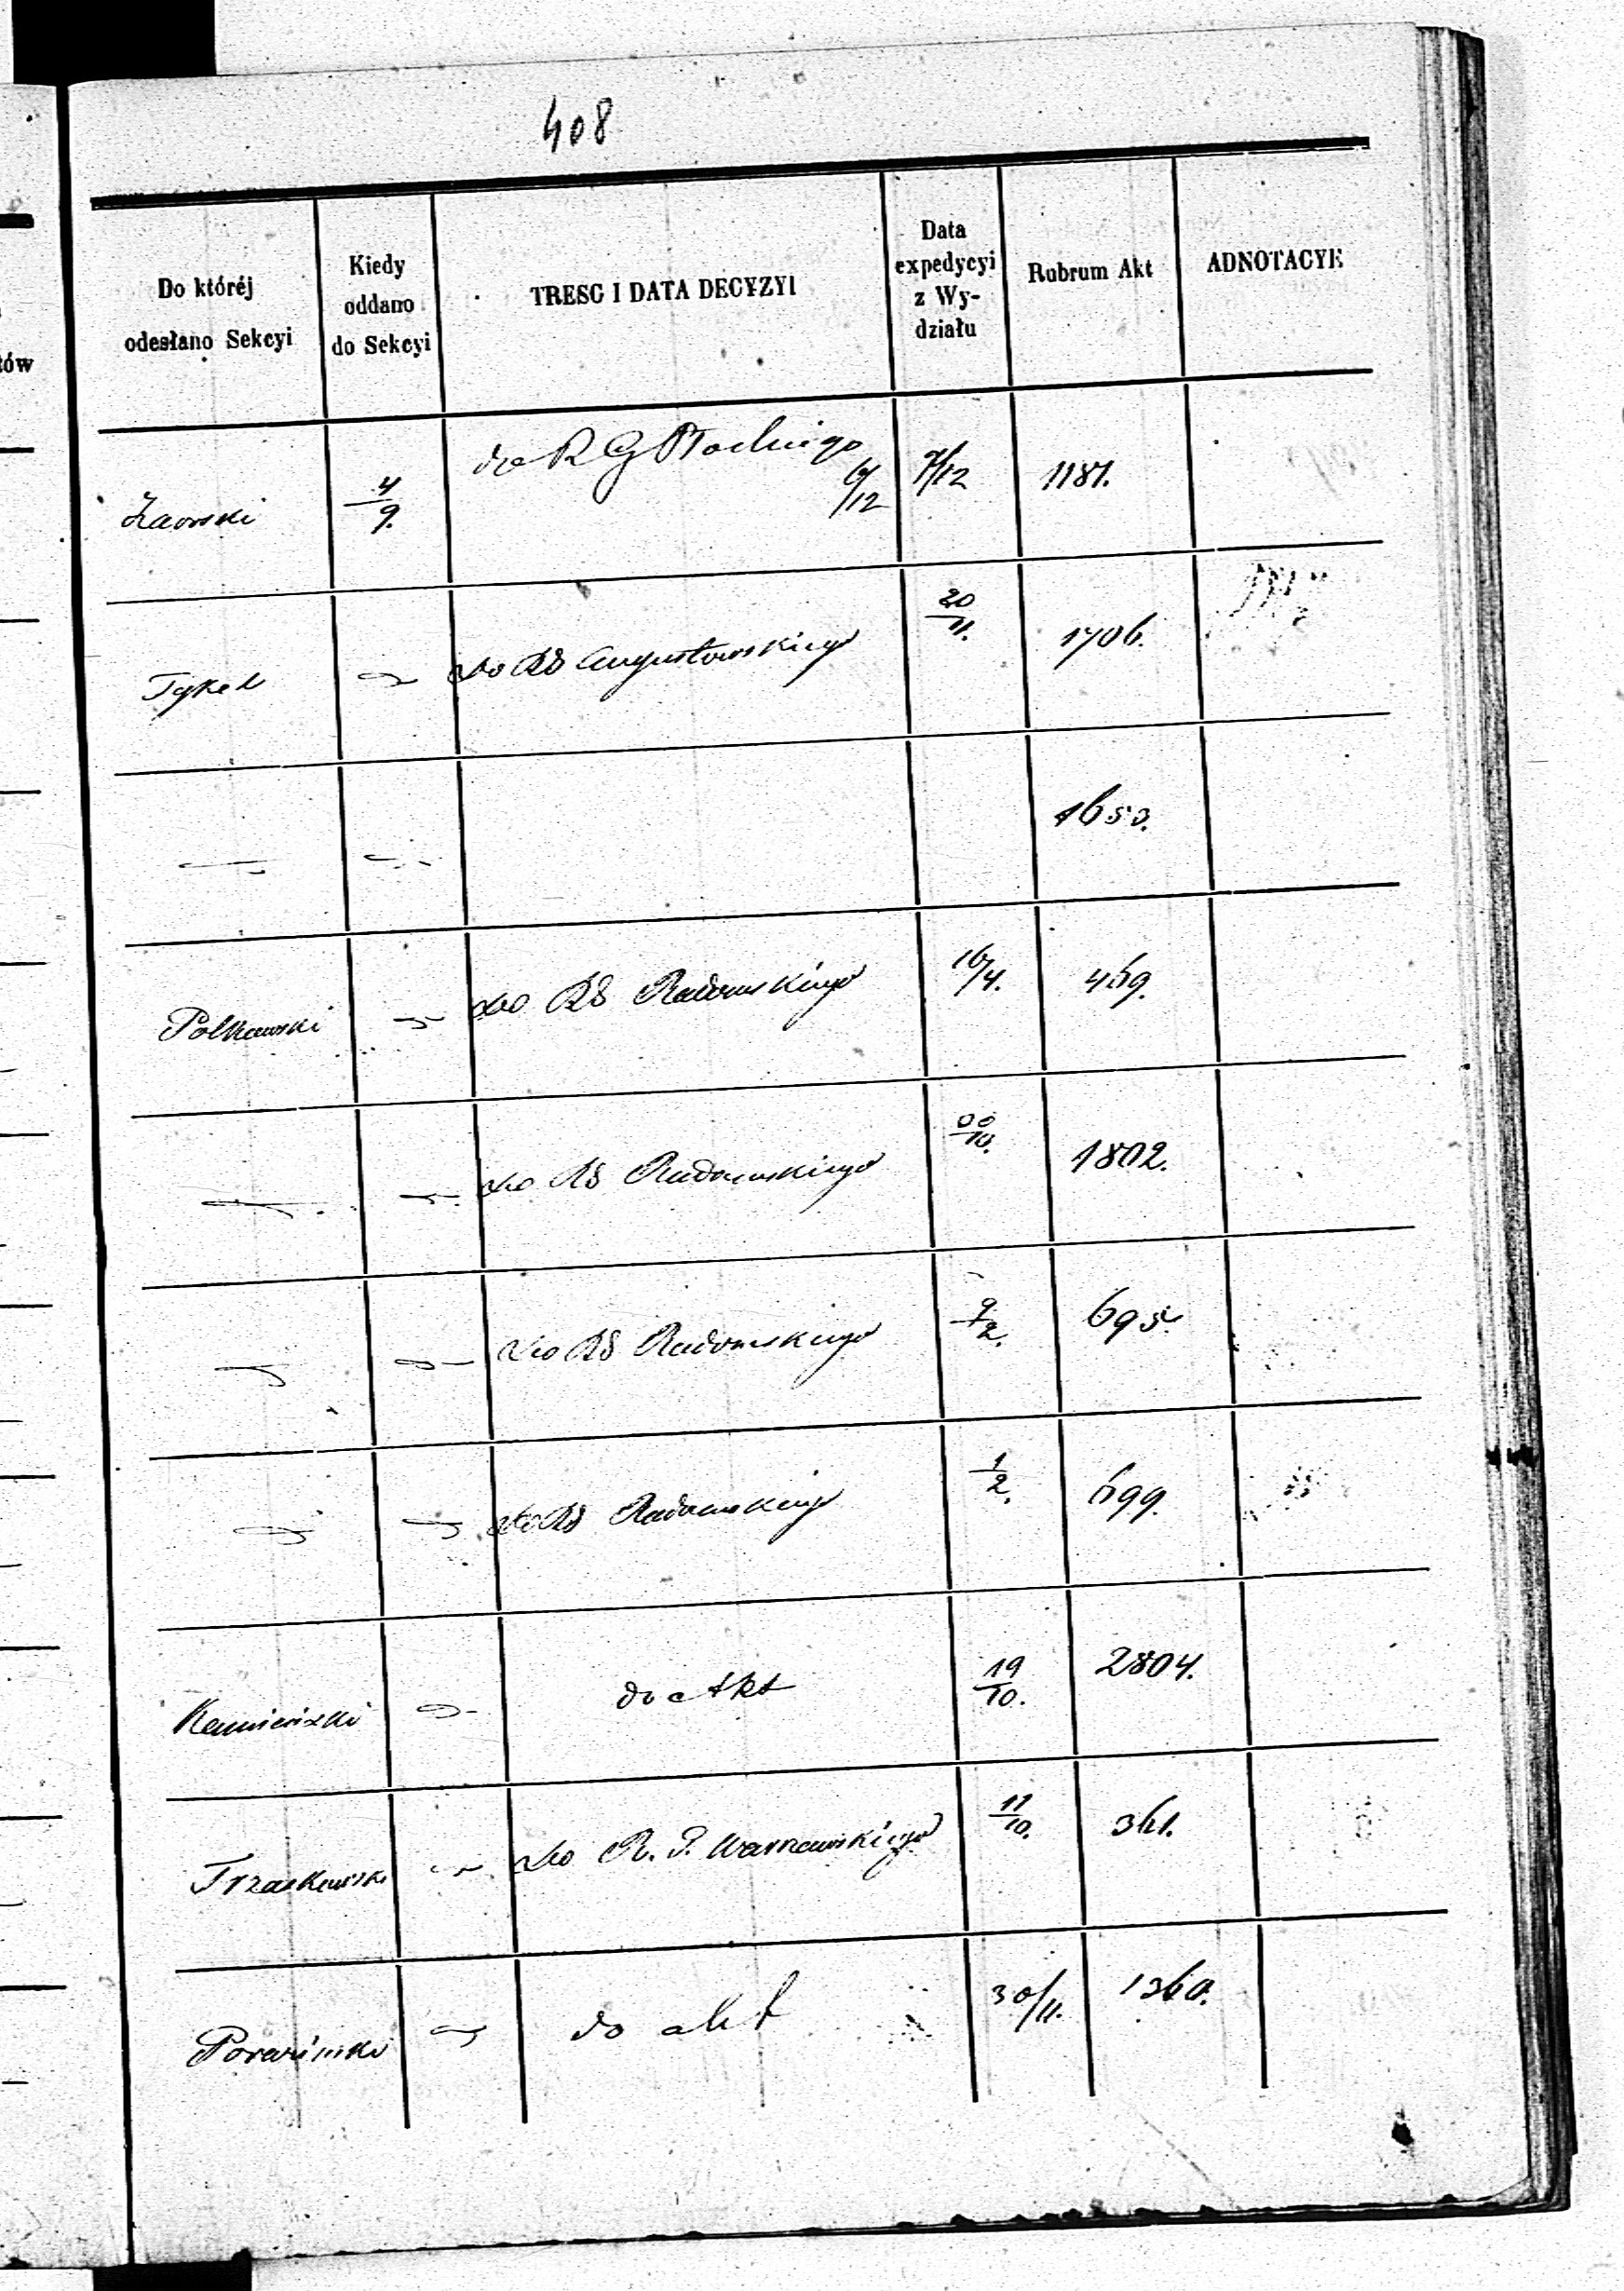 408
Do któréj odesłano Sekcyi
Kiedy oddano do Sekcyi
TRESC I DATA DECYZYI
Data expedycyi z Wydziału
Rubrum Akt
ADNOTACYE
tów
Żaorski 4/9. do R G Płockiego 6/12 7/12 1181.
Tykel do RG Augustowskiego 20/11. 1706.
1650.
Polkowski do RG Radomskiego 16/4. 469.
do RG Radomskiego /10. 1802.
do RG Radomskiego 9/2. 695.
do RG Radomskiego 1/2. 699.
Kamieński do Akt 19/10. 2804.
Trzaskowski do R. G. Warszawskiego 11/10. 361.
do akt 30/11. 1360.